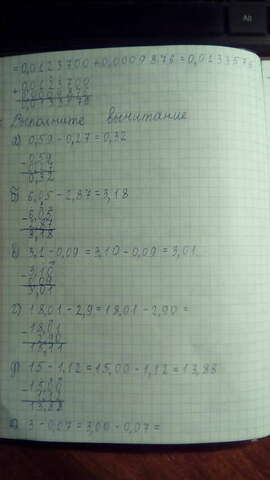 Alt
=0,0123700+0,0009876=0,0133576
+0,0123700
0,0009876
0,0133576
Выполните вычитание
а) 0,59-0,27=0,32
-0,59
0,27
0,32
б) 6,05-2,87=3,18
-6,05
2,87
3,18
в) 3,1-0,09=3,10-0,09=3,01
-3,10
0,09
3,01
г) 18,01-2,9=18,01-2,90=
-18,01
2,90
15,11
д) 15-1,12=15,00-1,12=13,88
-15,00
1,12
13,88
е) 3-0,07=3,00-0,07=